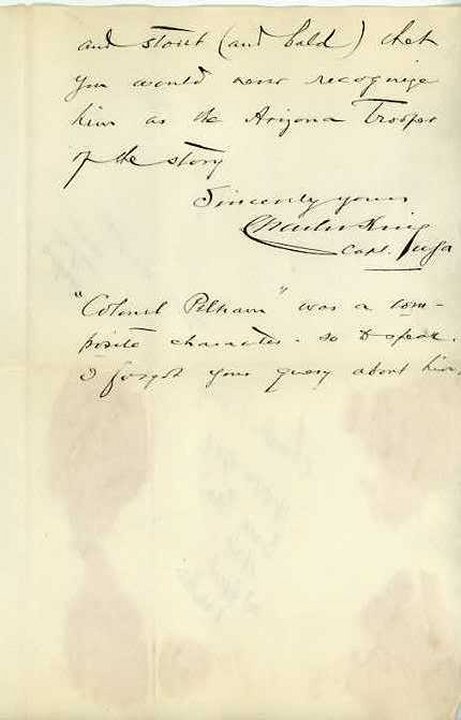 and stout (and bald) that
you would never recognize
him as the Arizona Trooper
of the story
Sincerely yours
Charles King
Capt. USA
"Colonel Pelham" was a com-
posite character - so to speak.
I forgot your query about him.